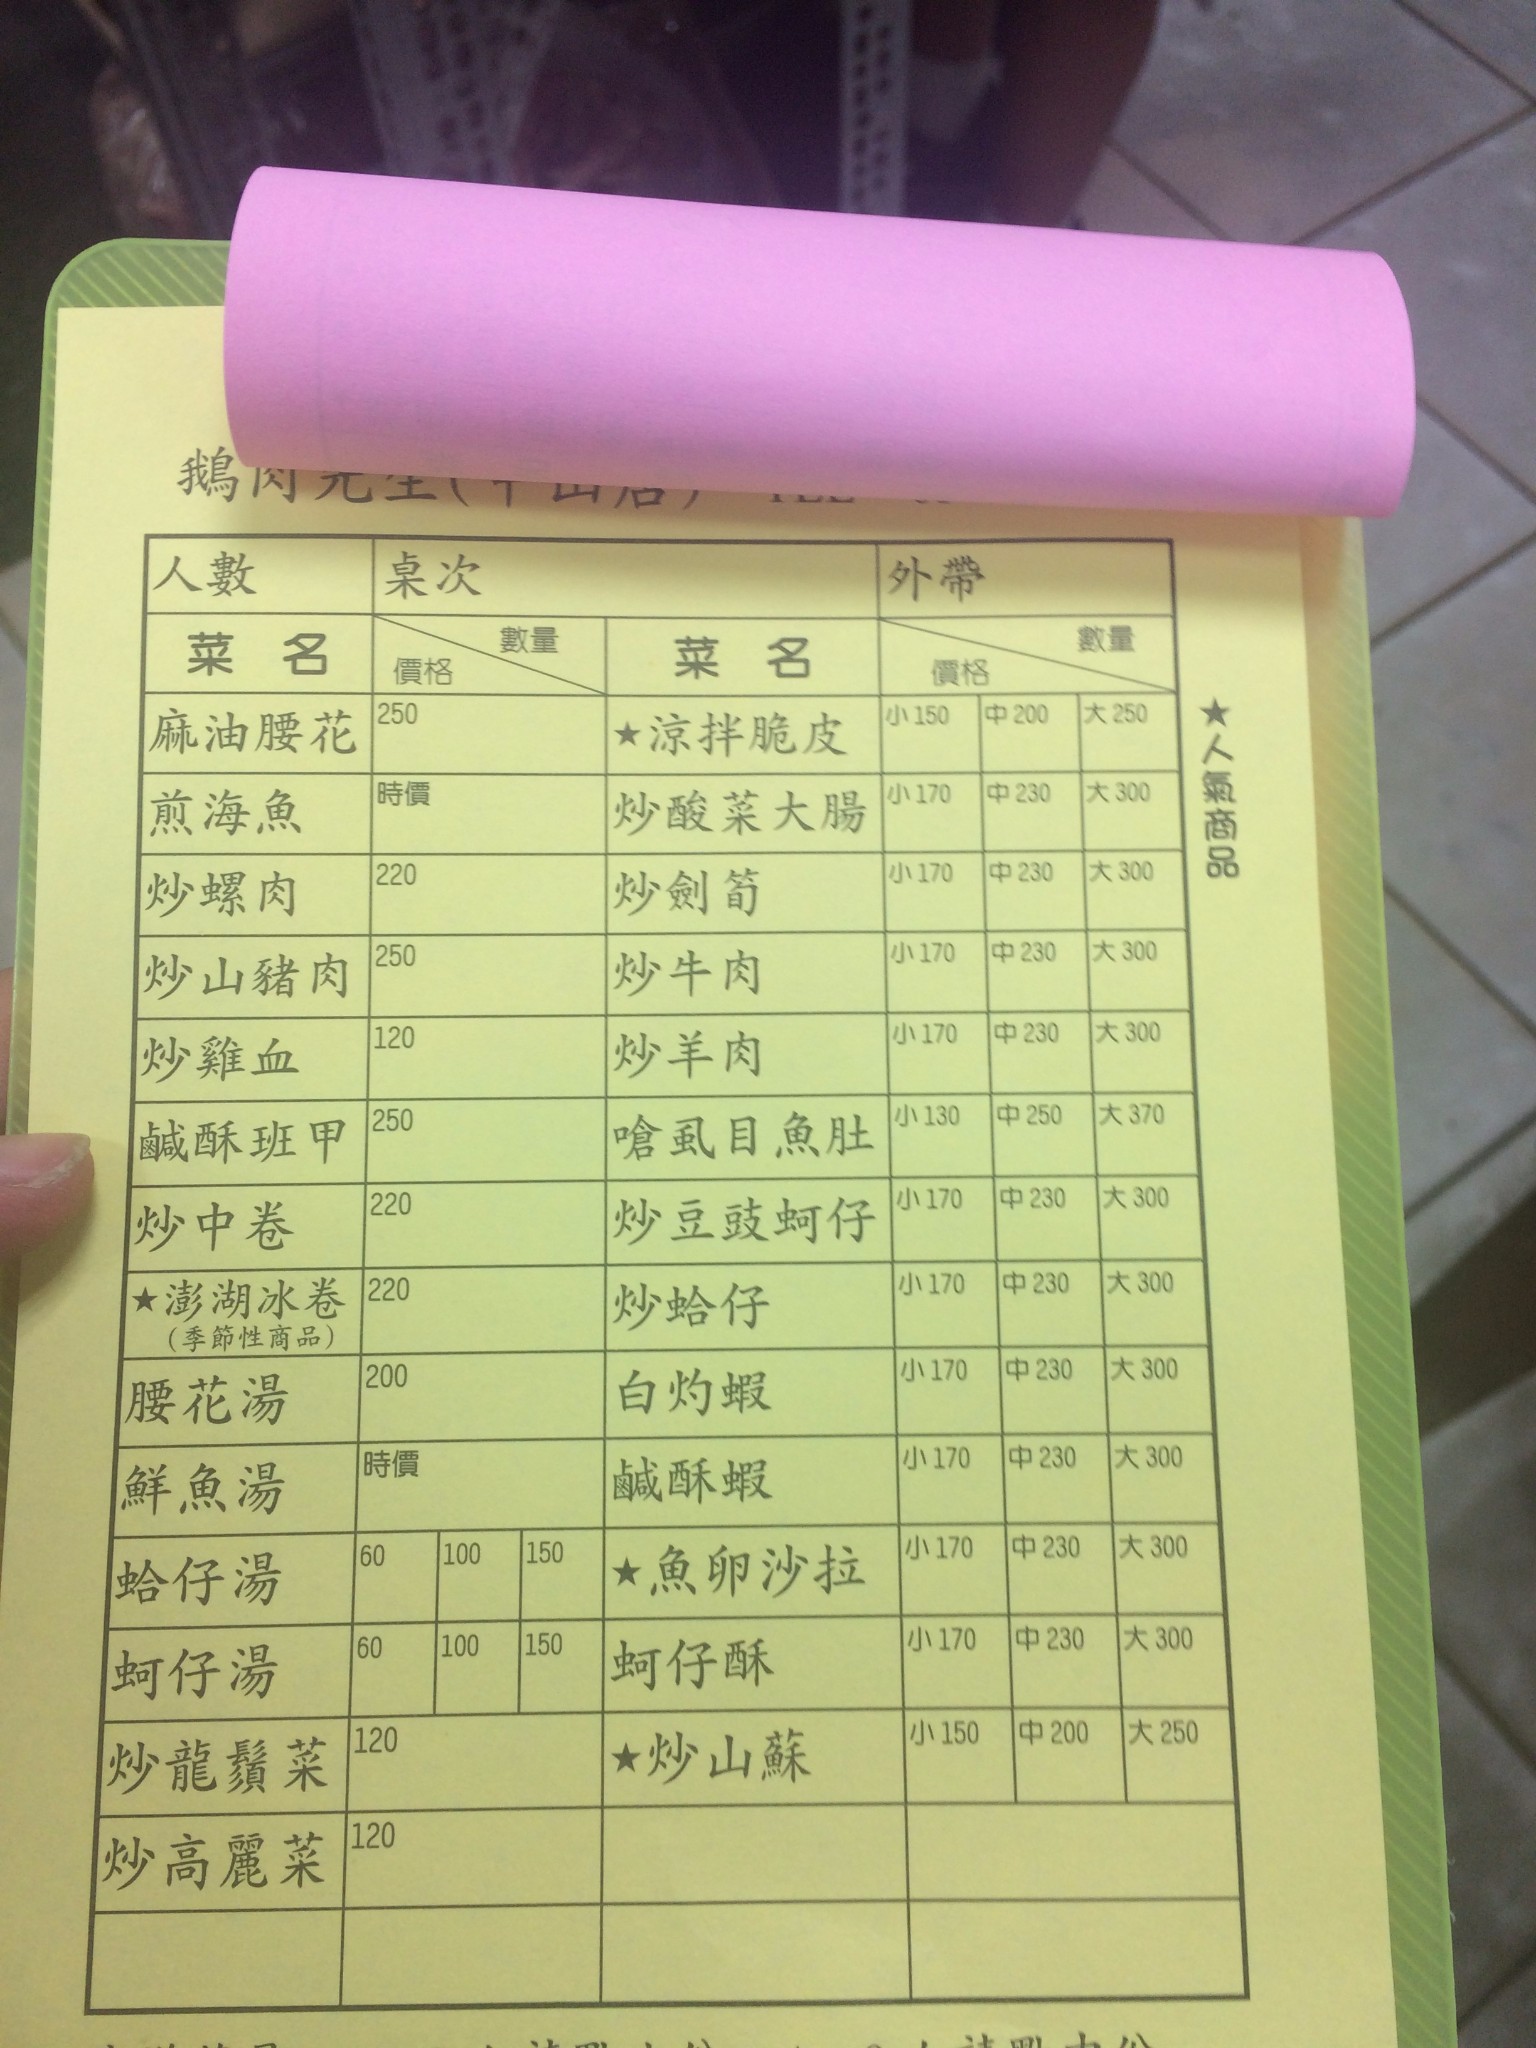 鵝肉先生(中山店) TEL
人數 桌次 外帶
菜名 價格 數量 菜名 價格 數量
麻油腰花 250 ★涼拌脆皮 小150 中200 大250
煎海魚 時價 炒酸菜大腸 小170 中230 大300
炒螺肉 220 炒劍筍 小170 中230 大300
炒山豬肉 250 炒牛肉 小170 中230 大300
炒雞血 120 炒羊肉 小170 中230 大300
鹹酥班甲 250 嗆虱目魚肚 小130 中250 大370
炒中卷 220 炒豆豉蚵仔 小170 中230 大300
★澎湖冰卷 220 炒蛤仔 小170 中230 大300
(季節性商品)
腰花湯 200 白灼蝦 小170 中230 大300
鮮魚湯 時價 鹹酥蝦 小170 中230 大300
蛤仔湯 60 100 150 ★魚卵沙拉 小170 中230 大300
蚵仔湯 60 100 150 蚵仔酥 小170 中230 大300
炒龍鬚菜 120 ★炒山蘇 小150 中200 大250
炒高麗菜 120
★人氣商品